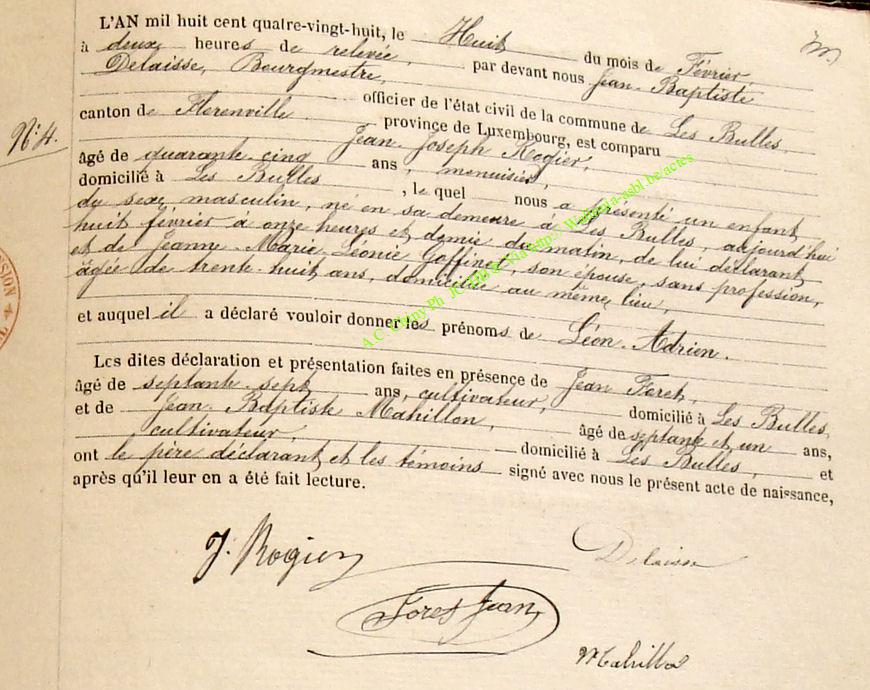 L'AN mil huit cent quatre-vingt-huit, le Huit du mois de Février
à deux heures de relevée, par devant nous Jean-Baptiste
Delaisse, Bourgmestre,
officier de l'état civil de la commune de Les Bulles
canton de Florenville province de Luxembourg, est comparu
N° 4.
Jean Joseph Rogier,
âgé de quarante cinq ans, menuisier,
domicilié à Les Bulles, le quel nous a présenté un enfant
du sexe masculin, né en sa demeure à Les Bulles, aujourd'hui
huit février à onze heures et demie du matin, de lui déclarant
et de Jeanne-Marie Léonie Goffinet, son épouse, sans profession,
âgée de trente-huit ans, domiciliée au même lieu,
et auquel il a déclaré vouloir donner les prénoms de Léon-Adrien.
Les dites déclaration et présentation faites en présence de Jean Foret,
âgé de septante-sept ans, cultivateur, domicilié à Les Bulles
et de Jean-Baptiste Mahillon, âgé de septante et un ans,
cultivateur, domicilié à Les Bulles, et
ont le père déclarant et les témoins signé avec nous le présent acte de naissance,
après qu'il leur en a été fait lecture.
J. Rogier
Delaisse
Foret Jean
Mahillon